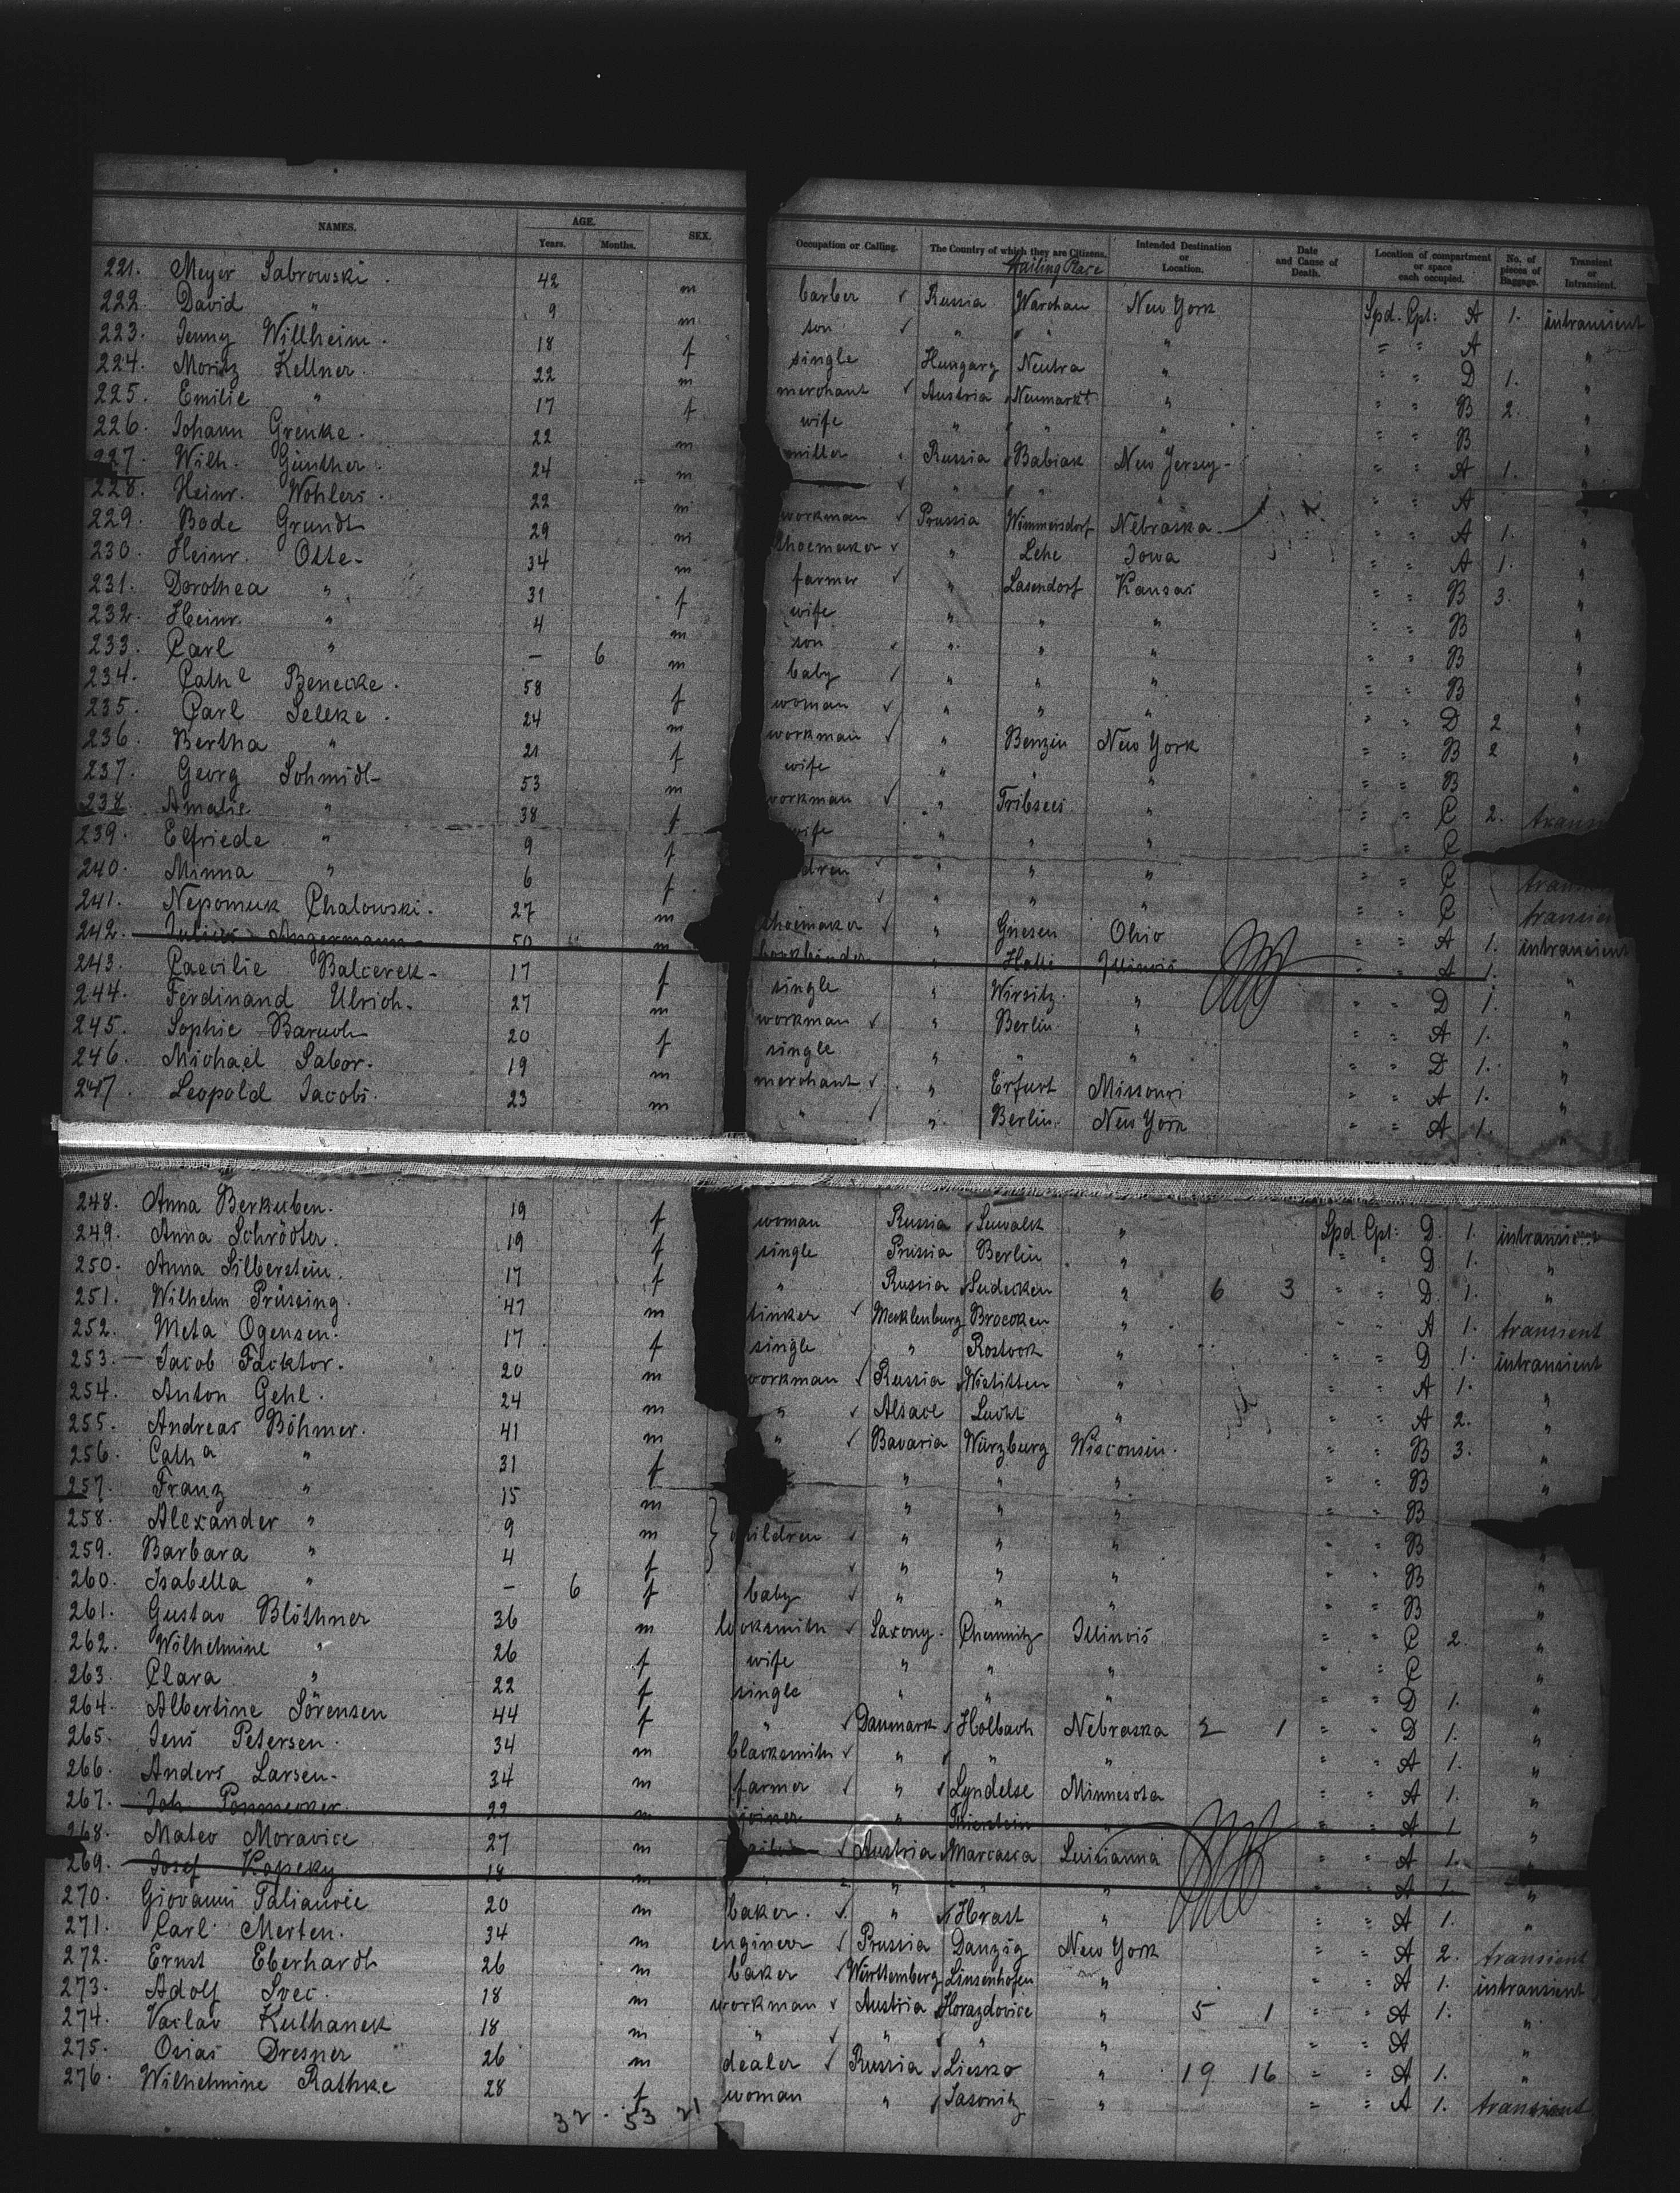 NAMES. AGE. Years. Months. SEX. Occupation or Calling. The Country of which they are Citizens. Hailing Place Intended Destination or Location. Date and Cause of Death. Location of compartment or space each occupied. No. of pieces of Baggage. Transient or Intransient.
221. Meyer Sabrowski. 42 m barber ✓ Russia Warchau New York Spd. Cpt: A 1. intransient
222. David " 9 m son ✓ " " " " " A "
223. Jenny Willheim. 18 f single Hungary Neutra " " " D 1. "
224. Moritz Kellner. 22 m merchant ✓ Austria Neumarkt " " " B 2. "
225. Emilie " 17 f wife " " " " " B "
226. Johann Grenke. 22 m miller Russia Babiak New Jersey " " A 1. "
227. Wilh. Günther. 24 m ✓ " " " " " A "
228. Heinr. Wohlers. 22 m workman ✓ Prussia Wimmersdorf Nebraska " " A 1. "
229. Bode Grundt 29 m shoemaker ✓ " Lehe Iowa " " A 1. "
230. Heinr. Otte 34 m farmer ✓ " Lasendorf Kansas " " B 3. "
231. Dorothea " 31 f wife " " " " " B "
232. Heinr. " 4 m son " " " " " B "
233. Carl " – 6 m baby ✓ " " " " " B "
234. Cathe Benecke. 58 f woman ✓ " " " " " D 2 "
235. Carl Selke. 24 m workman ✓ " Benzin New York " " B 2 "
236. Bertha " 21 f wife " " " " " B "
237. Georg Schmidt 53 m workman ✓ " Tribsees " " " C 2. trans
238. Amalie " 38 f wife " " " " " C
239. Elfriede " 9 f dren ✓ " " " " " C tran
240. Minna " 6 f ✓ " " " " " C transien
241. Nepomuk Chalowski. 27 m shoemaker ✓ " Gnesen Ohio " " A 1. intransient
242. Julius Angermann 50 m bookbinder " Halle Illinois " " A 1. "
243. Caecilie Balcerek 17 f single " Wirsitz " " " D 1. "
244. Ferdinand Ulrich. 27 m workman ✓ " Berlin " " " A 1. "
245. Sophie Baruch 20 f single " " " " " D 1. "
246. Michael Sabor. 19 m merchant ✓ " Erfurt Missouri " " A 1. "
247. Leopold Jacobi. 23 m " ✓ " Berlin New York " " A 1. "
248. Anna Berkuben. 19 f woman Russia Suwalk " Spd. Cpt: D. 1. intransient
249. Anna Schröder. 19 f single Prussia Berlin " " " D 1. "
250. Anna Silberstein. 17 f " Russia Sudecken " 6 3 " " D. 1. "
251. Wilhelm Prüssing. 47 m tinker ✓ Mecklenburg Broecken " " " A 1. transient
252. Meta Ogensen. 17 f single " Rostock " " " D 1. intransient
253. Jacob Facktor. 20 m workman ✓ Russia Wistitten " " " A 1. "
254. Anton Gehl. 24 m " ✓ Alsace Lucht " " " A 2. "
255. Andreas Böhmer. 41 m " ✓ Bavaria Würzburg Wisconsin. " " B 3. "
256. Catha " 31 f " " " " " B "
257. Franz " 15 m " " " " " B
258. Alexander " 9 m children ✓ " " " " " B "
259. Barbara " 4 f ✓ " " " " " B "
260. Isabella " – 6 f baby ✓ " " " " " B "
261. Gustav Blöthner 36 m locksmith ✓ Saxony. Chemnitz Illinois " " C 2. "
262. Wilhelmine " 26 f wife " " " " " C "
263. Clara " 22 f single " " " " " D 1. "
264. Albertine Sörensen 44 f " ✓ Danmark Holbach Nebraska 2 1 " " D 1. "
265. Jens Petersen. 34 m blacksmith ✓ " " " " " A 1. "
266. Anders Larsen. 34 m farmer ✓ " Lyndelse Minnesota " " A 1. "
267. Joh. Pommecker. 22 m joiner " " " " A 1 "
268. Mateo Moravice 27 m ✓ Austria Marcasca Luisianna " " A 1. "
269. Josef Kopeky 18 m " " " " " " A 1. "
270. Giovanni Talianvic 20 m baker. ✓ " Hrast " " " A 1. "
271. Carl Merten. 34 m engineer ✓ Prussia Danzig New York " " A 2. transient
272. Ernst Eberhardt 26 m baker ✓ Württemberg Linsenhofen " " " A 1. intransient
273. Adolf Svec. 18 m workman ✓ Austria Horazdovice " 5 1 " " A 1. "
274. Vaclav Kulhanek 18 m " ✓ " " " " " A "
275. Osias Dresner 26 m dealer ✓ Russia Liesko " 19 16 " " A 1. "
276. Wilhelmine Rathke 28 f woman " Sasonitz " " " A 1. transient
32. 53 21